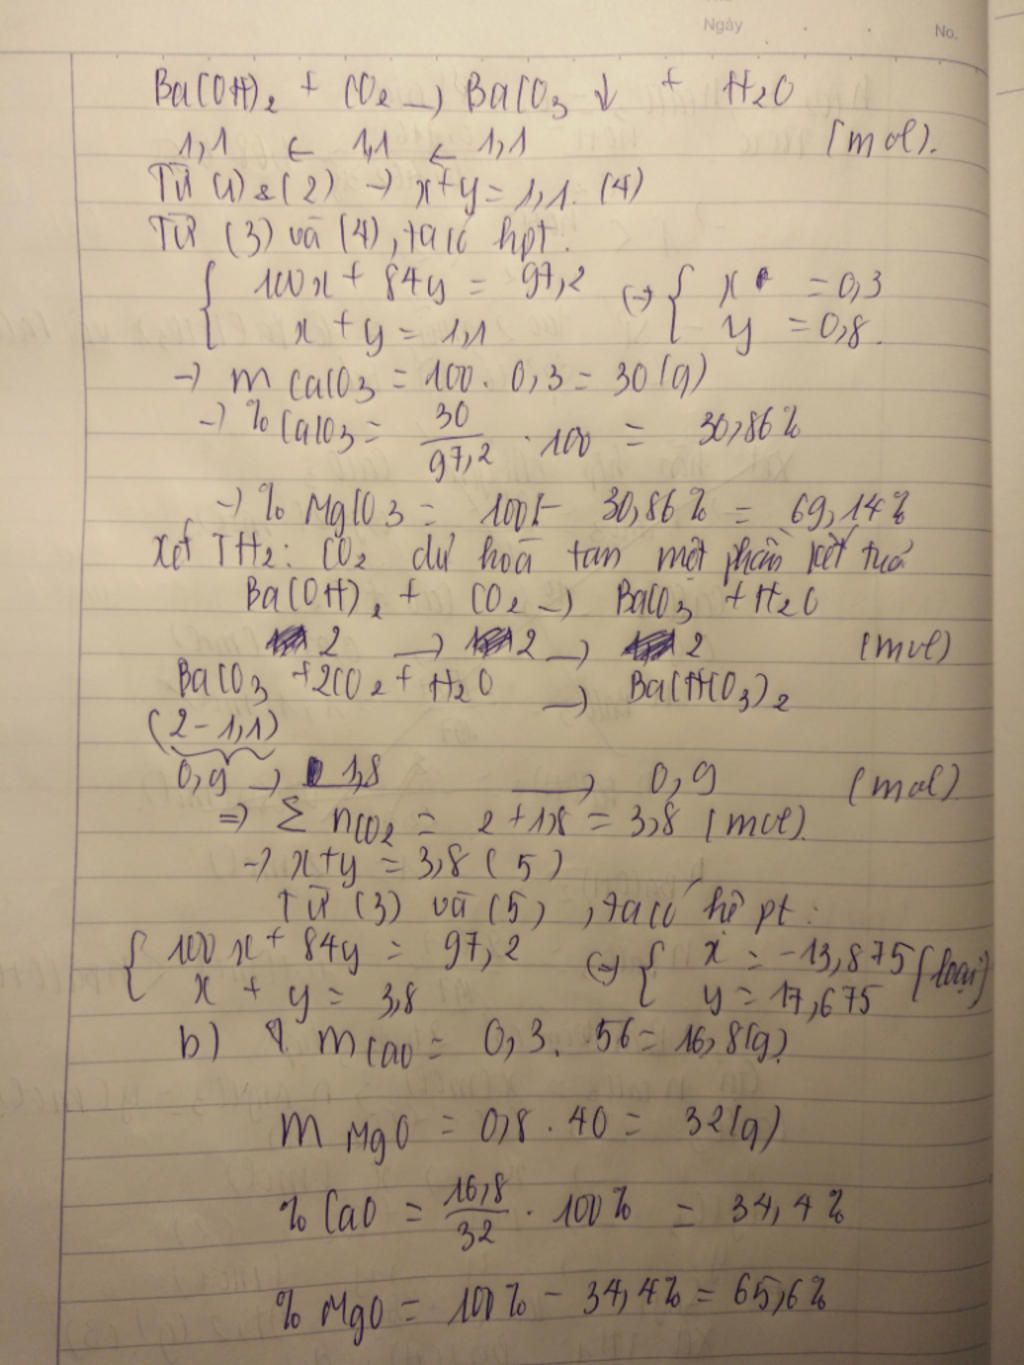 Ngày
No.
Ba(OH)₂ + CO₂ → BaCO₃ ↓ + H₂O
1,1 ← 1,1 ← 1,1 (mol).
Từ (1) & (2) → x+y = 1,1. (4)
Từ (3) và (4), ta có hpt.
{ 100x + 84y = 97,2 (→) { x = 0,3
x + y = 1,1 y = 0,8.
→ m CaCO₃ = 100 . 0,3 = 30 (g)
→ % CaCO₃ = 30/97,2 . 100 = 30,86%
→ % MgCO₃ = 100% - 30,86% = 69,14%
Xét TH₂: CO₂ dư hoà tan một phần kết tuả
Ba(OH)₂ + CO₂ → BaCO₃ + H₂O
2 → 2 → 2 (mol)
BaCO₃ + 2CO₂ + H₂O → Ba(HCO₃)₂
(2 - 1,1)
0,9 → 1,8 → 0,9 (mol)
⇒ Σ nCO₂ = 2 + 1,8 = 3,8 (mol).
→ x+y = 3,8 (5)
Từ (3) và (5), ta có hệ pt:
{ 100x + 84y = 97,2 (→) { x = -13,875 (loại)
x + y = 3,8 y = 17,675
b) m CaO = 0,3 . 56 = 16,8 (g).
m MgO = 0,8 . 40 = 32 (g)
% CaO = 16,8/32 . 100% = 34,4%
% MgO = 100% - 34,4% = 65,6%